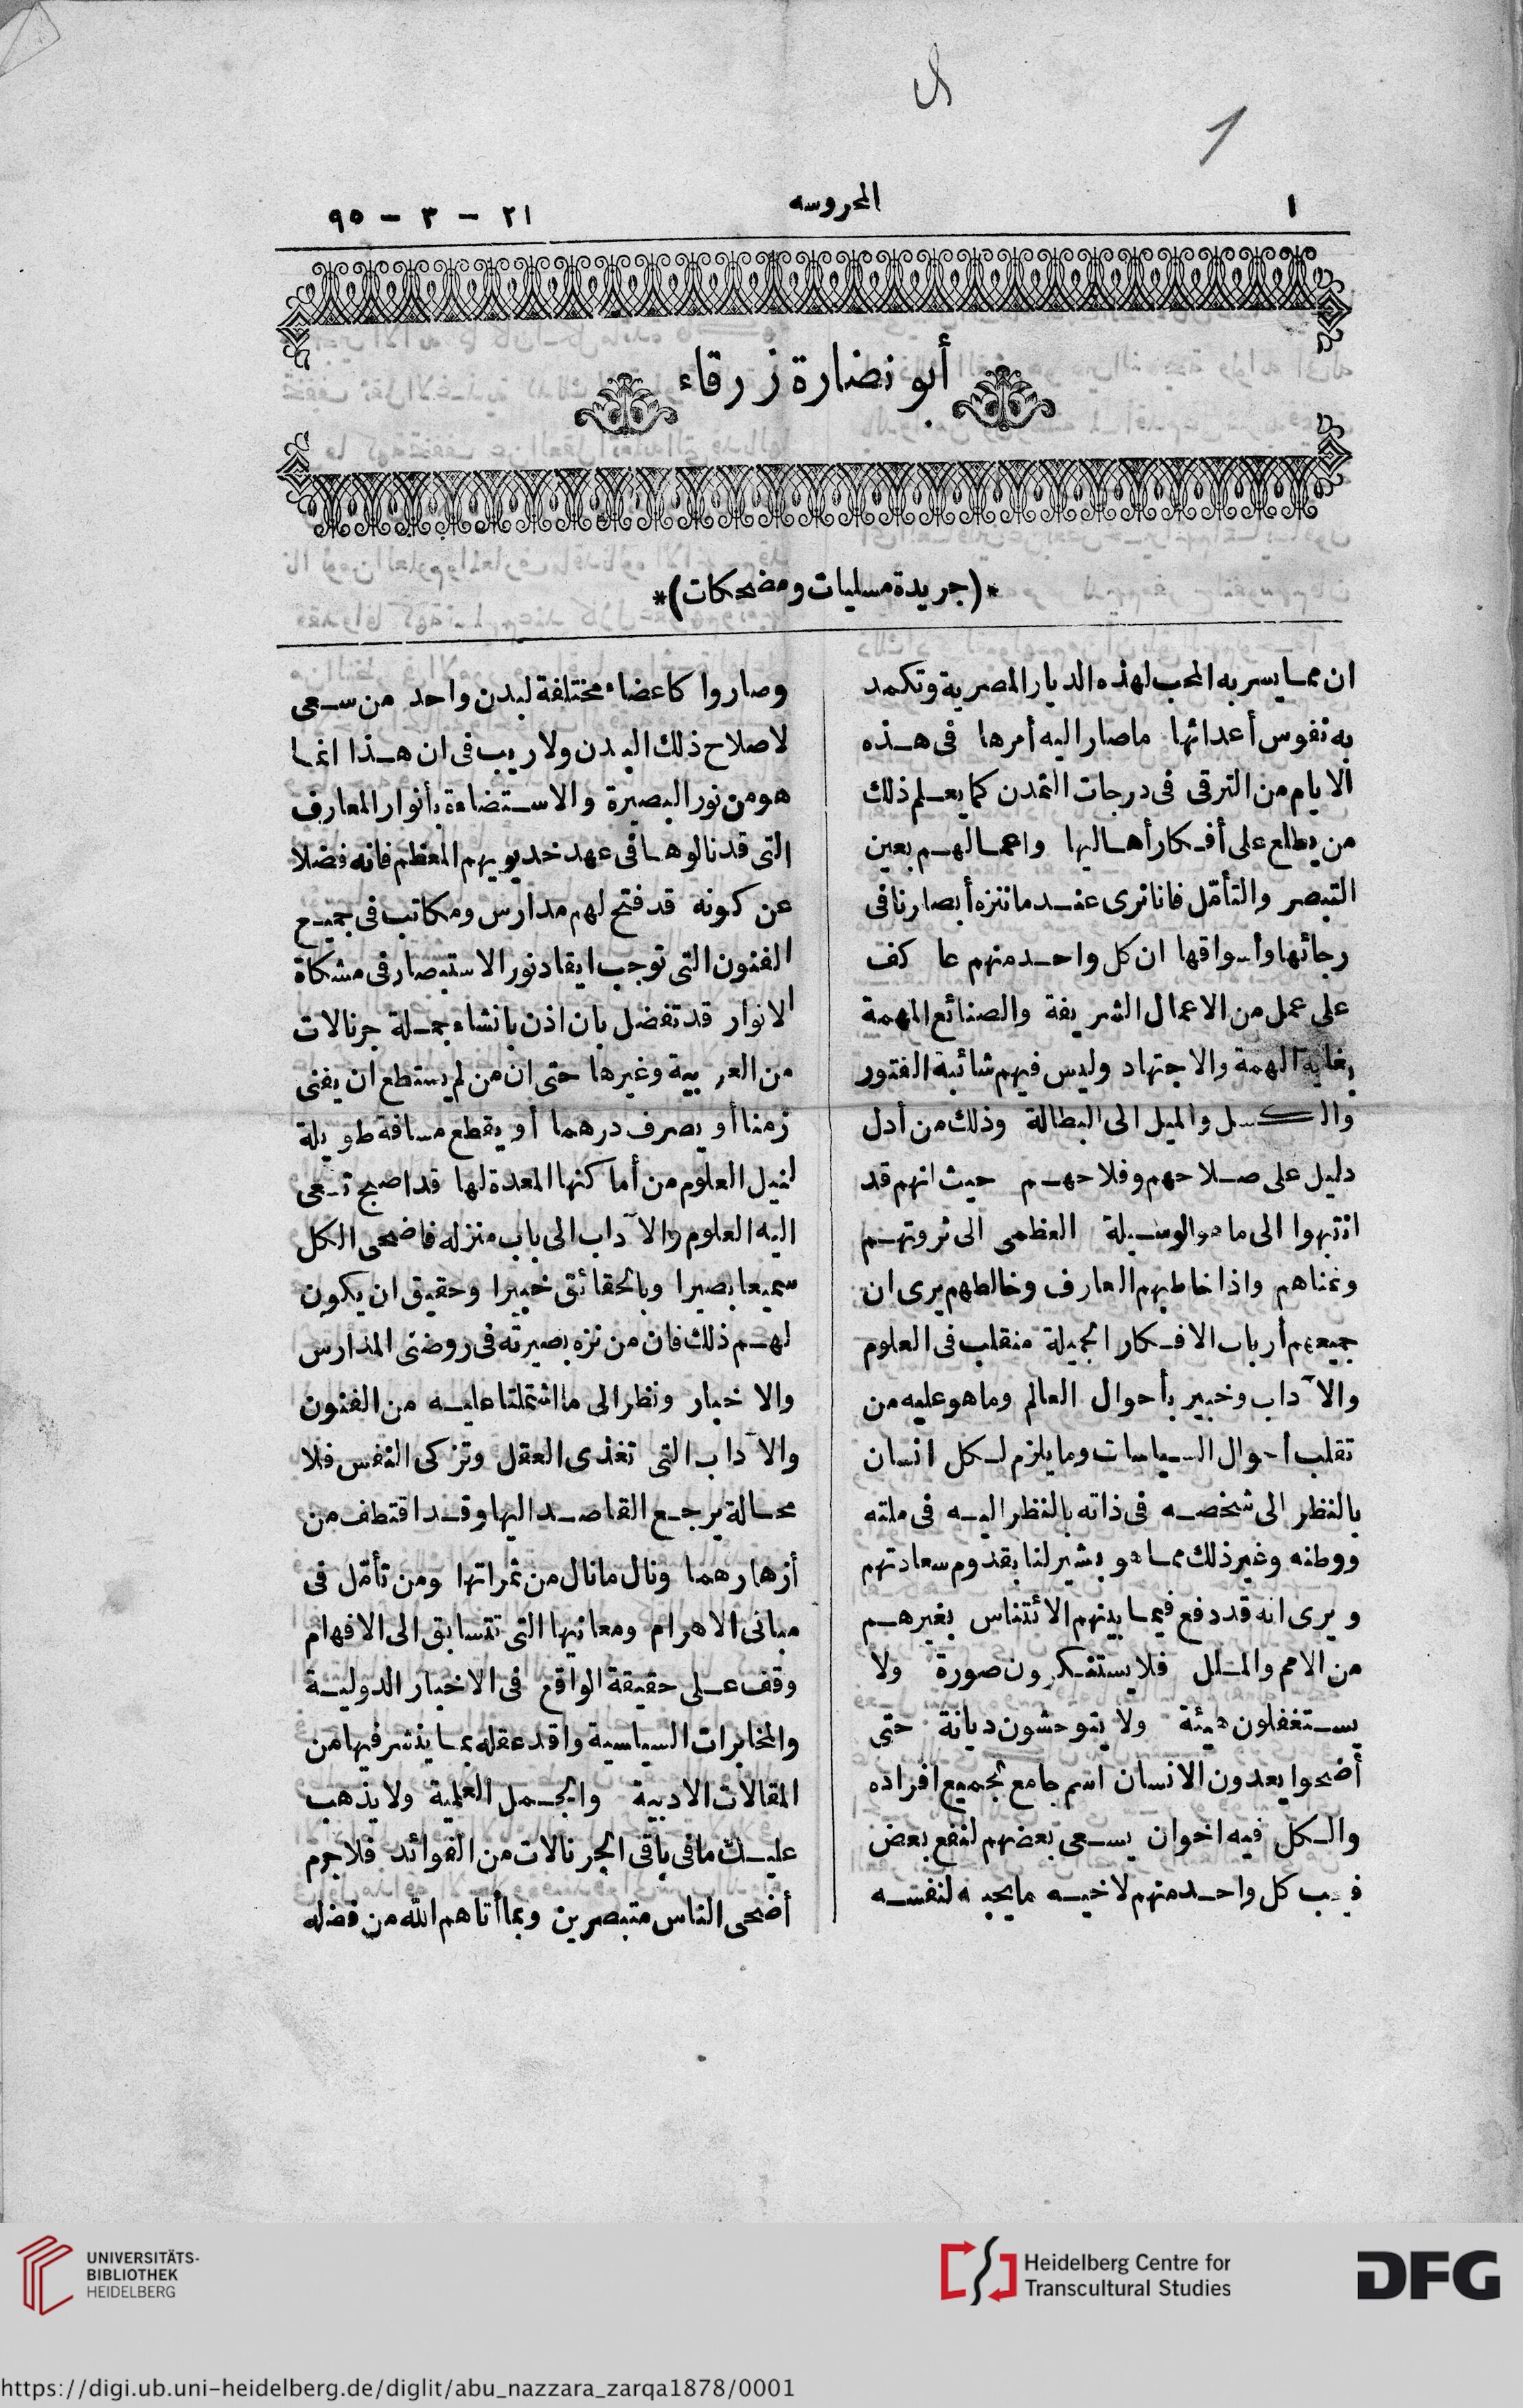 1
١
المحروسه
٢١ - ٣ - ٩٥
أبو نضارة زرقاء
*(جريدة مسليات ومضحكات)*
ان مما يسر به المحب لهذه الديار المصرية وتكمد
به نفوس أعدائها ما صار اليه أمرها فى هذه
الايام من الترقى فى درجات التمدن كما يعلم ذلك
من يطلع على أفكار أهاليها واعمالهم بعين
التبصر والتأمّل فاننا نرى عند ما ننزه أبصارنا فى
رجائها وأسواقها ان كل واحد منهم عا كف
على عمل من الاعمال الشريفة والصنائع المهمة
بغاية الهمة والاجتهاد وليس فيهم شائبة الفتور
والكسل والميل الى البطالة وذلك من أدل
دليل على صلاحهم وفلاحهم حيث انهم قد
انتبهوا الى ما هو الوسيلة العظمى الى ثروتهم
وغناهم واذا خاطبهم العارف وخالطهم يرى ان
جميعهم أرباب الافكار الجميلة منقلب فى العلوم
والآداب وخبير بأحوال العالم وما هو عليه من
تقلب أحوال السياسات وما يلزم لكل انسان
بالنظر الى شخصه فى ذاته بالنظر اليه فى ملته
ووطنه وغير ذلك مما هو بشير لنا بقدوم سعادتهم
ويرى انه قد دفع فيما بينهم الائتناس بغيرهم
من الامم والملل فلا يستنكرون صورة ولا
يستغفلون هيئة ولا يتوحشون ديانة حتى
أضحوا يعدون الانسان اسم جامع لجميع افراده
والكل فيه اخوان يسعى بعضهم لنفع بعض
فيحب كل واحد منهم لاخيه ما يحبه لنفسه
وصاروا كاعضاء مختلفة لبدن واحد من سعى
لاصلاح ذلك البدن ولا ريب فى ان هذا انما
هو من نور البصيرة والاستضاءة بأنوار المعارف
التى قد نالوها فى عهد خديويهم المعظم فانه فضلا
عن كونه قد فتح لهم مدارس ومكاتب فى جميع
الفنون التى توجب ايقاد نور الاستبصار فى مشكاة
الانوار قد تفضل بان اذن بانشاء جملة جرنالات
من العربية وغيرها حتى ان من لم يستطع ان يفنى
زمنا أو يصرف درهما أو يقطع مسافة طويلة
لنيل العلوم من أماكنها المعدة لها قد اصبح تسعى
اليه العلوم والآداب الى باب منزله فاضحى الكل
سميعا بصيرا وبالحقائق خبيرا وحقيق ان يكون
لهم ذلك فان من نزه بصيرته فى روضتى المدارس
والاخبار ونظر الى ما اشتملتا عليه من الفنون
والآداب التى تغذى العقل وتزكى النفس فلا
محالة يرجع القاصد اليها وقد اقتطف من
أزهارهما ونال ما نال من ثمراتها ومن تأمّل فى
مبانى الاهرام ومعانيها التى تتسابق الى الافهام
وقف على حقيقة الواقع فى الاخبار الدولية
والمخابرات السياسية واقد عقله بما ينشر فيها من
المقالات الادبية والجمل العلمية ولا يذهب
عليك ما فى باقى الجرنالات من الفوائد فلا جرم
أضحى الناس متبصرين وبما أتاهم الله من فضله
UNIVERSITÄTS-
BIBLIOTHEK
HEIDELBERG
Heidelberg Centre for
Transcultural Studies
DFG
https://digi.ub.uni-heidelberg.de/diglit/abu_nazzara_zarqa1878/0001